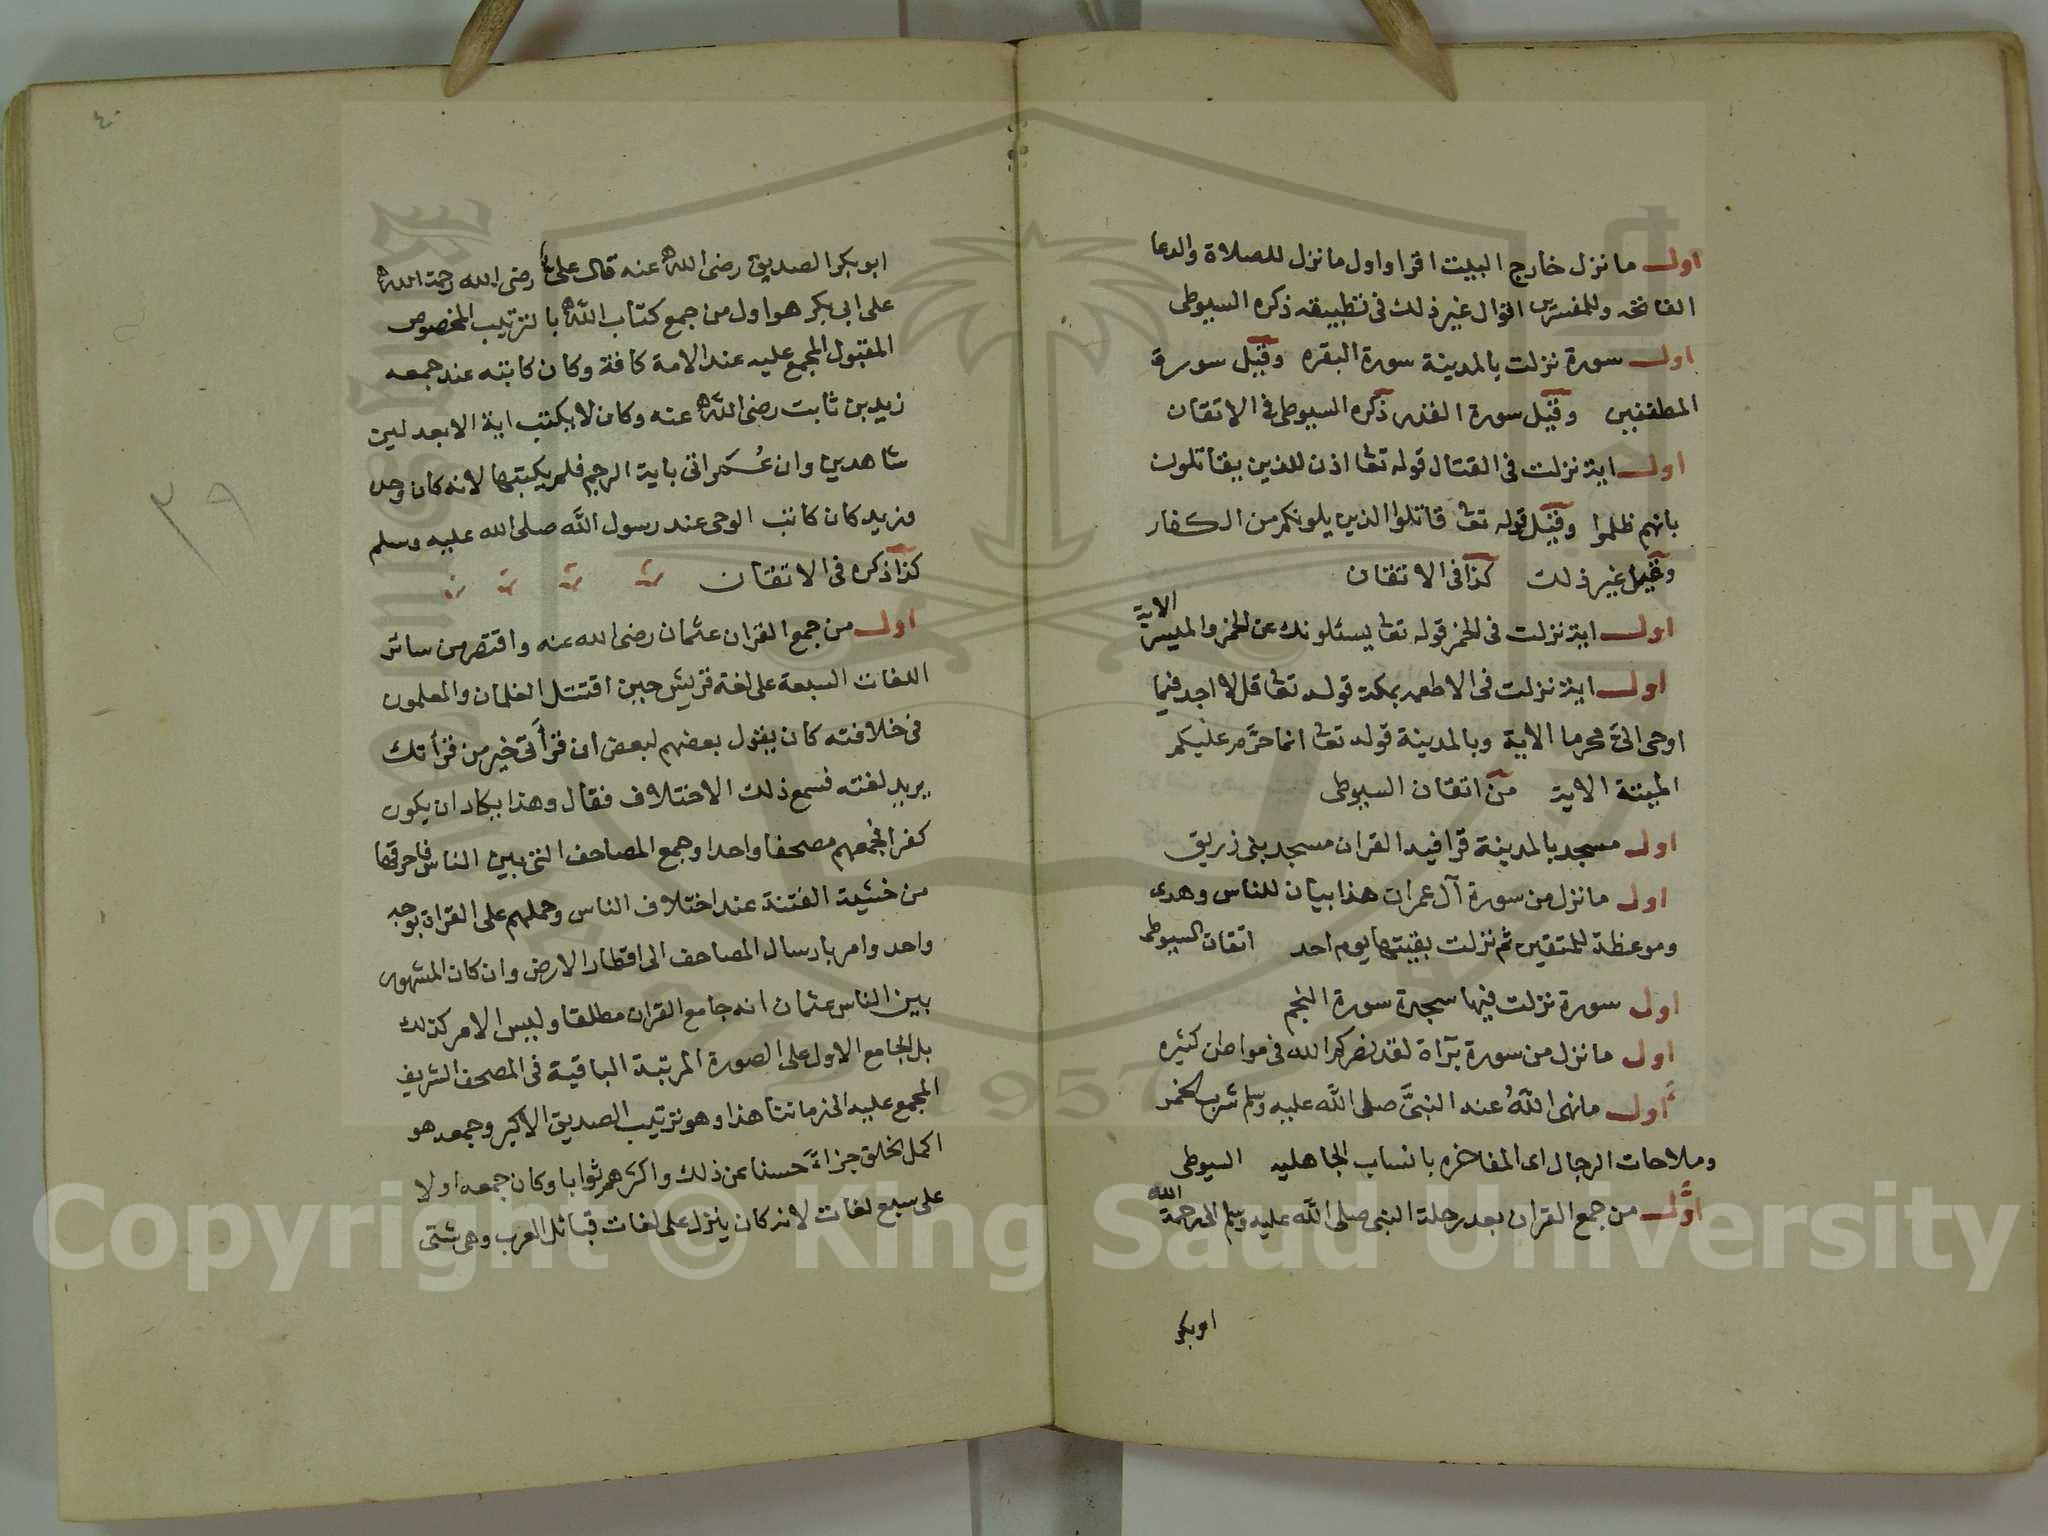 اول ما نزل خارج البيت اقرا واول ما نزل للصلاة والدعا
الفاتحه وللمفسرين اقوال غير ذلك فى تطبيقه ذكره السيوطى
اول سورة نزلت بالمدينة سورة البقره وقيل سورة
المطففين وقيل سورة القدر ذكره السيوطى فى الاتقان
اول اية نزلت فى القتال قوله تعا اذن للذين يقاتلون
بانهم ظلموا وقيل قوله تعا قاتلوا الذين يلونكم من الكفار
وقيل غير ذلك كذا فى الاتقان
اول اية نزلت فى الخمر قوله تعا يسئلونك عن الخمر والميسر الاية
اول اية نزلت فى الاطعمه بمكة قوله تعا قل لا اجد فيما
اوحى الىّ محرما الاية وبالمدينة قوله تعا انما حرّم عليكم
الميتة الاية من اتقان السيوطى
اول مسجد بالمدينة قرا فيه القران مسجد بنى زريق
اول ما نزل من سورة آل عمران هذا بيان للناس وهدى
وموعظة للمتقين ثم نزلت بقيتها يوم احد اتقان السيوطى
اول سورة نزلت فيها سجدة سورة النجم
اول ما نزل من سورة برآة لقد نصركم الله فى مواطن كثيره
اول ما نهى اللهُ عنه النبىَّ صلى الله عليه وسلم شرب الخمر
وملاحات الرجال اى المفاخره بانساب الجاهليه السيوطى
اوّل من جمع القران بعد رحلة النبى صلى الله عليه وسلم الى رحمة الله
ابو بكر
٤٠
ابو بكر الصديق رضى الله عنه قال على رضى الله رحمة الله
على ابى بكر هو اول من جمع كتاب الله بالترتيب المخصوص
المقبول المجمع عليه عند الامة كافة وكان كاتبه عند جمعه
زيد بن ثابت رضى الله عنه وكان لا يكتب اية الا بعدلين
شاهدين وان عُمر اتى باية الرجم فلم يكتبها لانه كان وحد
وزيد كان كاتب الوحى عند رسول الله صلى الله عليه وسلم
كذا ذكره فى الاتقان
اول من جمع القران عثمان رضى الله عنه واقتصر من سائر
اللغات السبعة على لغة قريش حين اقتتل الغلمان والمعلمون
فى خلافته كان يقول بعضهم لبعض ان قرأتى خير من قرأتك
يريد لغته فسمع ذلك الاختلاف فقال وهذا يكاد ان يكون
كفرا فجمعهم مصحفا واحدا وجمع المصاحف التى بين الناس فاحرقها
من خشية الفتنة عند اختلاف الناس وحملهم على القراة بوجه
واحد وامر بارسال المصاحف الى اقطار الارض وان كان المشهور
بين الناس عثمان انه جامع القران مطلقا وليس الامر كذلك
بل الجامع الاول على الصورة المرتبة الباقية فى المصحف الشريف
المجمع عليه الى زماننا هذا وهو ترتيب الصديق الاكبر وجمعه هو
اكمل الخلق جزاءً حسنا عن ذلك واكثرهم ثوابا وكان جمعه اولا
على سبع لغات لانه كان ينزل على لغات قبائل العرب وهى شتى
٣٩
1957
Copyright © King Saud University